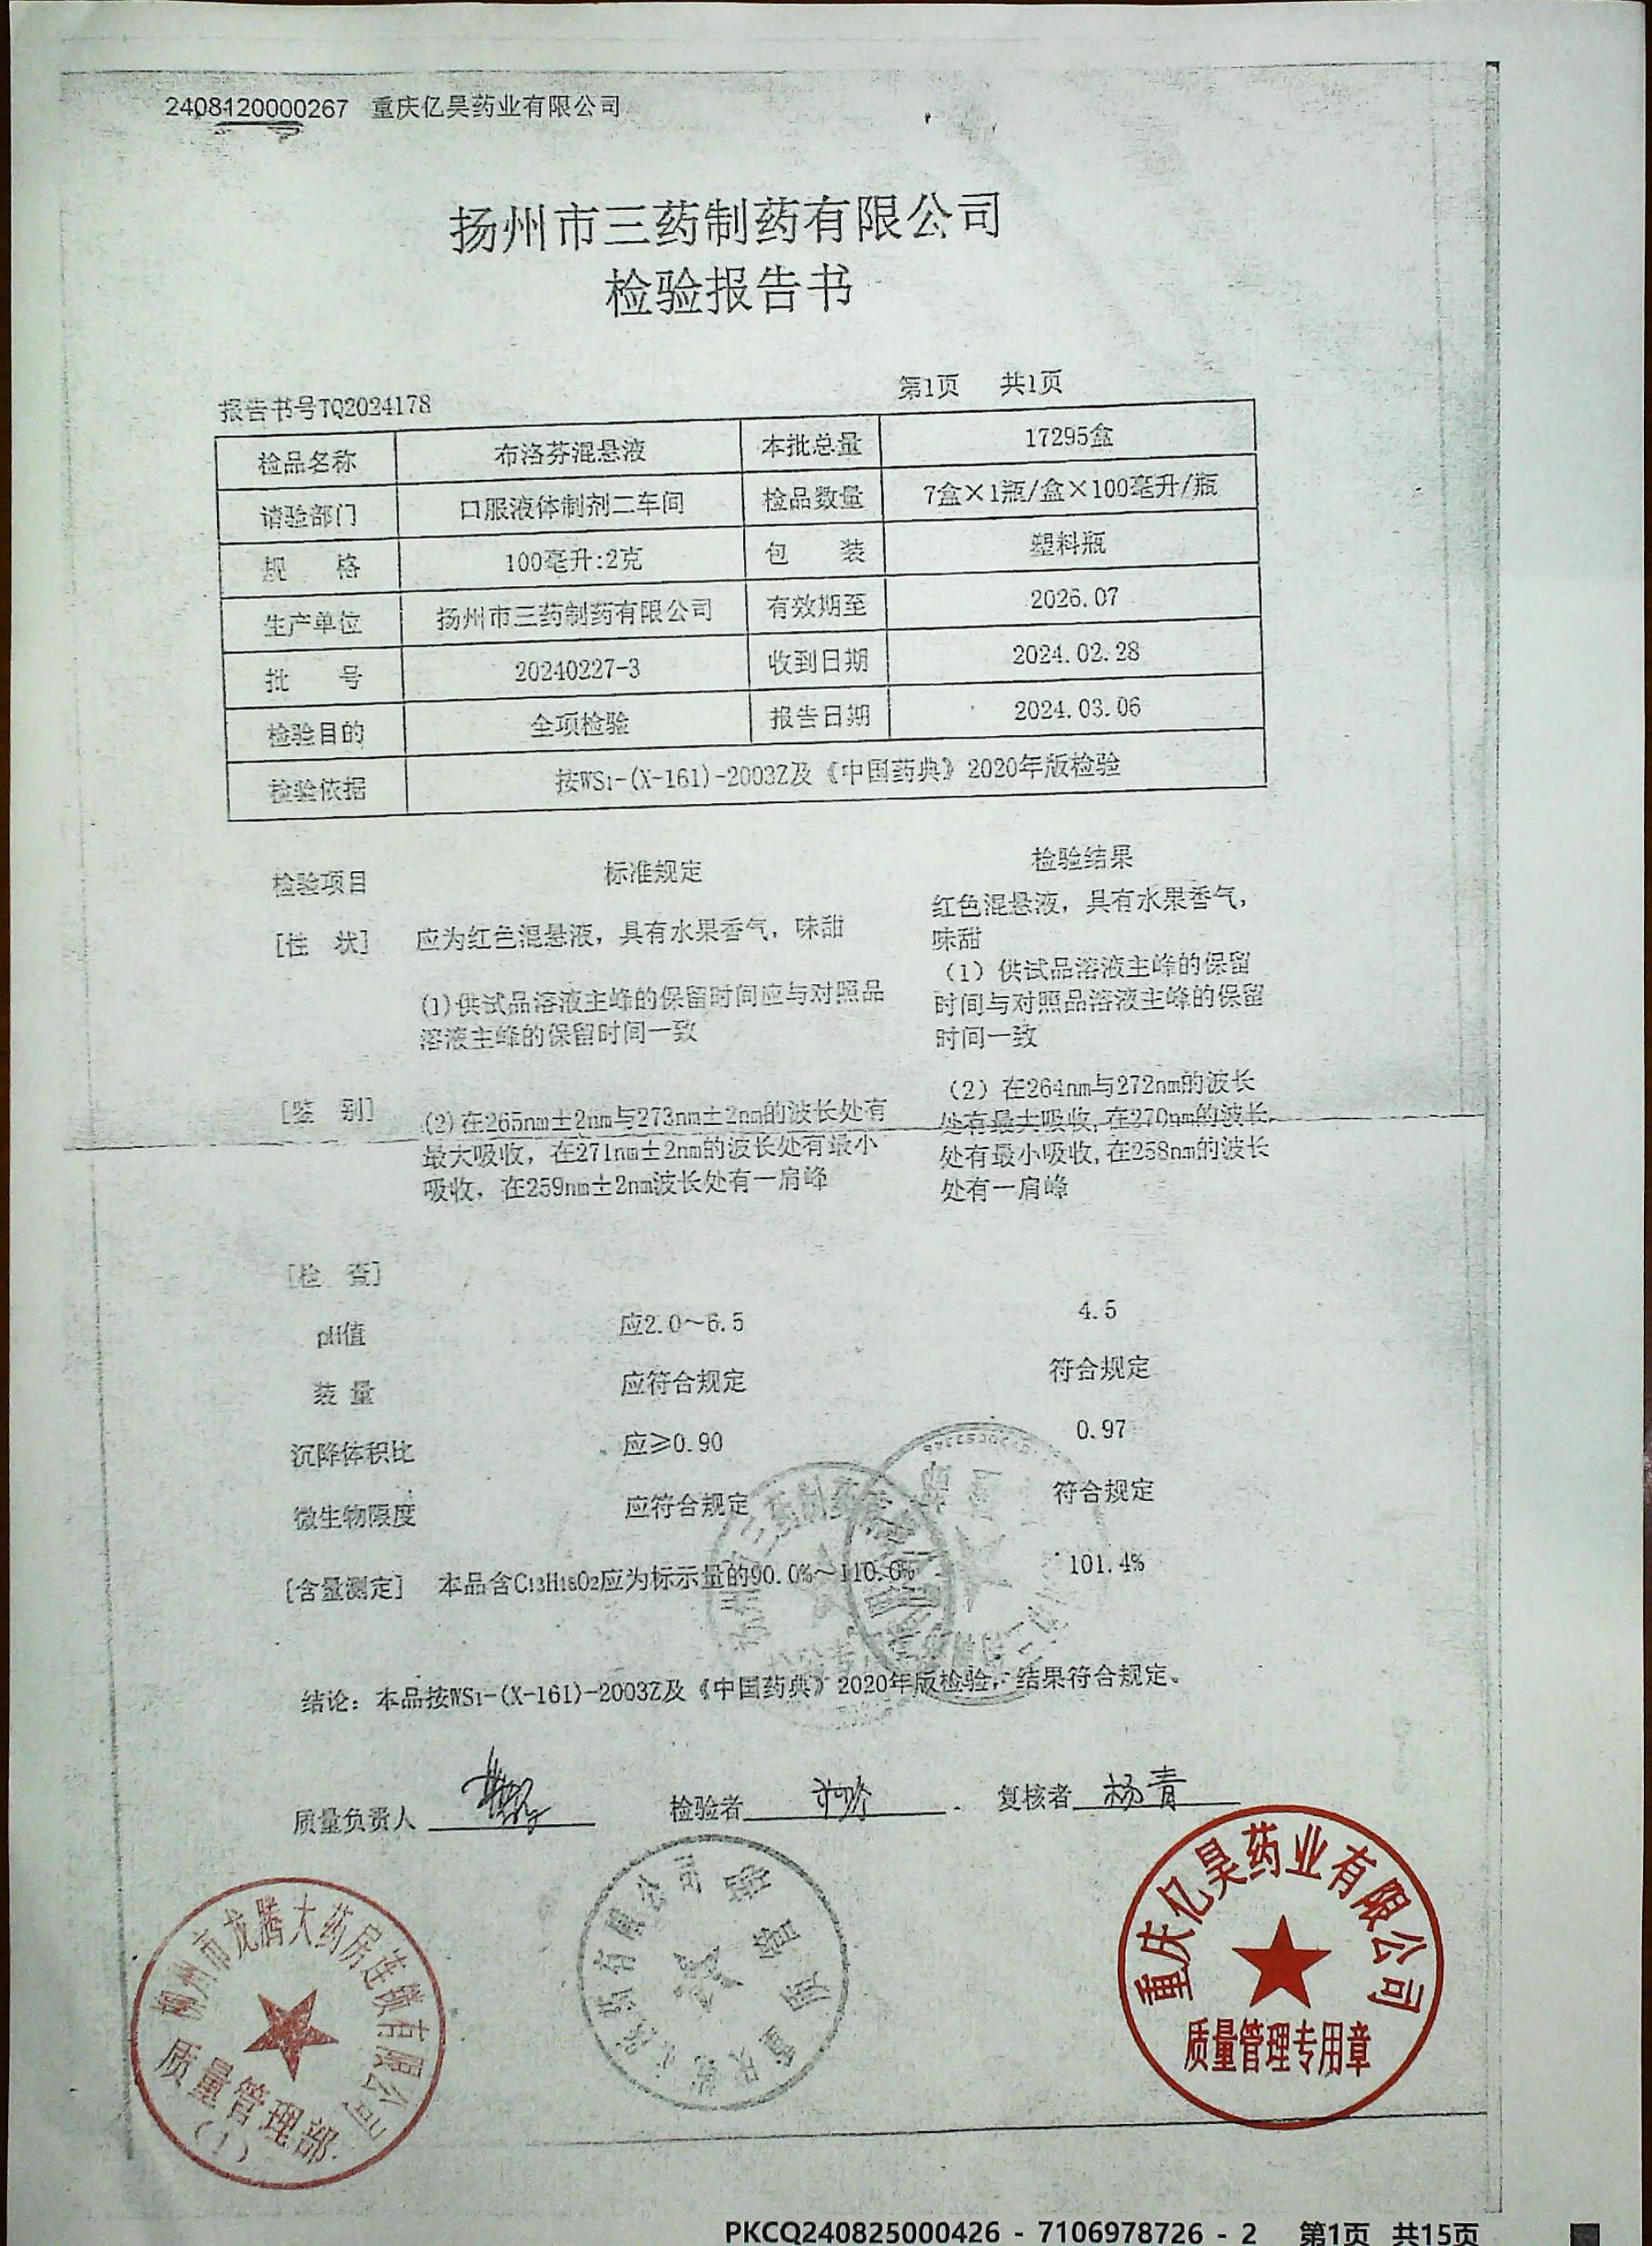 2408120000267 重庆亿昊药业有限公司
扬州市三药制药有限公司
检验报告书
报告书号TQ2024178 第1页 共1页
检品名称 布洛芬混悬液 本批总量 17295盒
请验部门 口服液体制剂二车间 检品数量 7盒×1瓶/盒×100毫升/瓶
规 格 100毫升:2克 包 装 塑料瓶
生产单位 扬州市三药制药有限公司 有效期至 2026.07
批 号 20240227-3 收到日期 2024.02.28
检验目的 全项检验 报告日期 2024.03.06
检验依据 按WS₁-(X-161)-2003Z及《中国药典》2020年版检验
检验项目 标准规定 检验结果
[性 状] 应为红色混悬液，具有水果香气，味甜 红色混悬液，具有水果香气，
味甜
(1)供试品溶液主峰的保留时间应与对照品 （1）供试品溶液主峰的保留
溶液主峰的保留时间一致 时间与对照品溶液主峰的保留
时间一致
[鉴 别] (2)在265nm±2nm与273nm±2nm的波长处有 （2）在264nm与272nm的波长
最大吸收，在271nm±2nm的波长处有最小 处有最大吸收,在270nm的波长
吸收，在259nm±2nm波长处有一肩峰 处有最小吸收,在258nm的波长
处有一肩峰
[检 查]
pH值 应2.0～6.5 4.5
装 量 应符合规定 符合规定
沉降体积比 应≥0.90 0.97
微生物限度 应符合规定 符合规定
[含量测定] 本品含C₁₃H₁₈O₂应为标示量的90.0%～110.0% 101.4%
结论：本品按WS₁-(X-161)-2003Z及《中国药典》2020年版检验，结果符合规定。
质量负责人 检验者 复核者 杨青
柳州市龙腾大药房连锁有限公司
质量管理部
(1)
重庆亿昊药业有限公司
质量管理专用章
PKCQ240825000426 - 7106978726 - 2 第1页 共15页